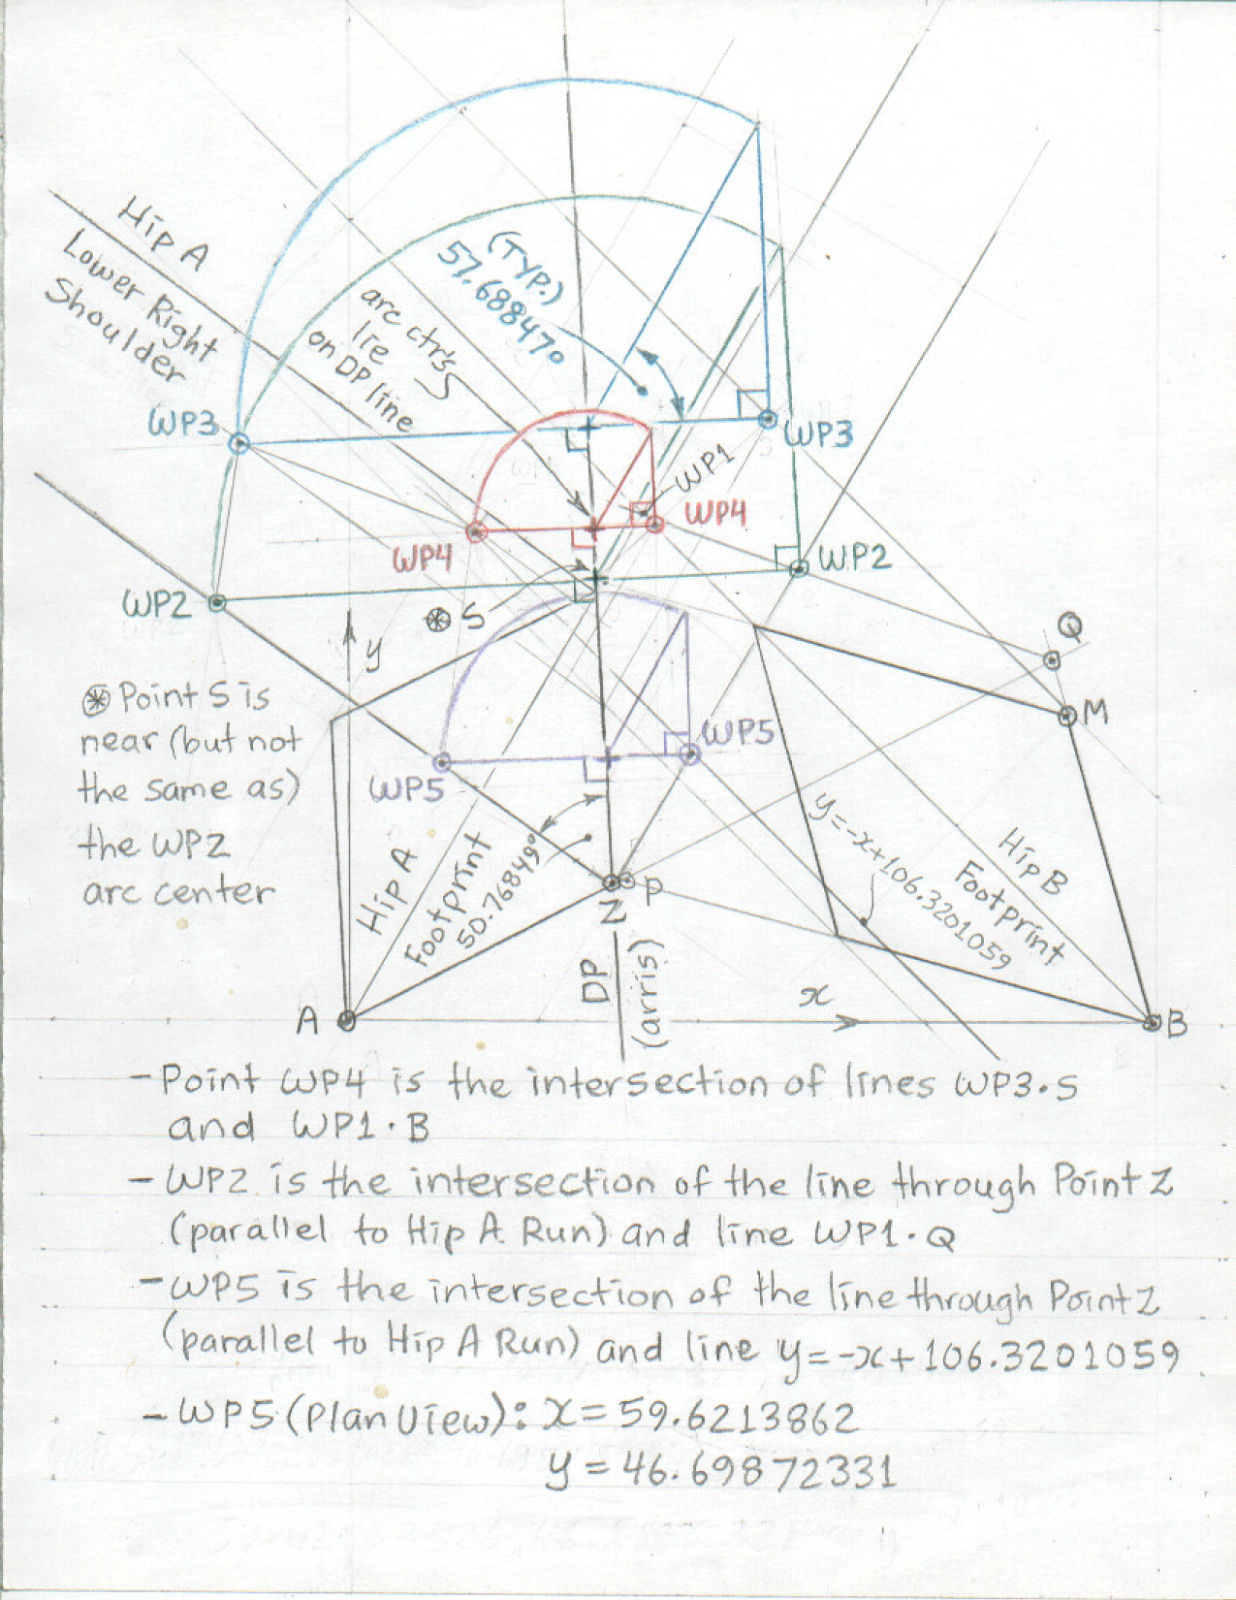 Hip A
Lower Right
Shoulder
(TYP.)
57.68847°
arc ctr's
lie
on DP line
WP3
WP3
WP1
WP4
WP4
WP2
WP2
S
y
Q
M
Point S is
near (but not
the same as)
the WP2
arc center
WP5
WP5
Hip A
Footprint
50.76849°
y=-x+106.3201059
Hip B
Footprint
Z
P
DP
(arris)
x
A
B
-Point WP4 is the intersection of lines WP3·S
and WP1·B
-WP2 is the intersection of the line through Point Z
(parallel to Hip A Run) and line WP1·Q
-WP5 is the intersection of the line through Point Z
(parallel to Hip A Run) and line y=-x+106.3201059
-WP5 (Plan View): x=59.6213862
y=46.69872331